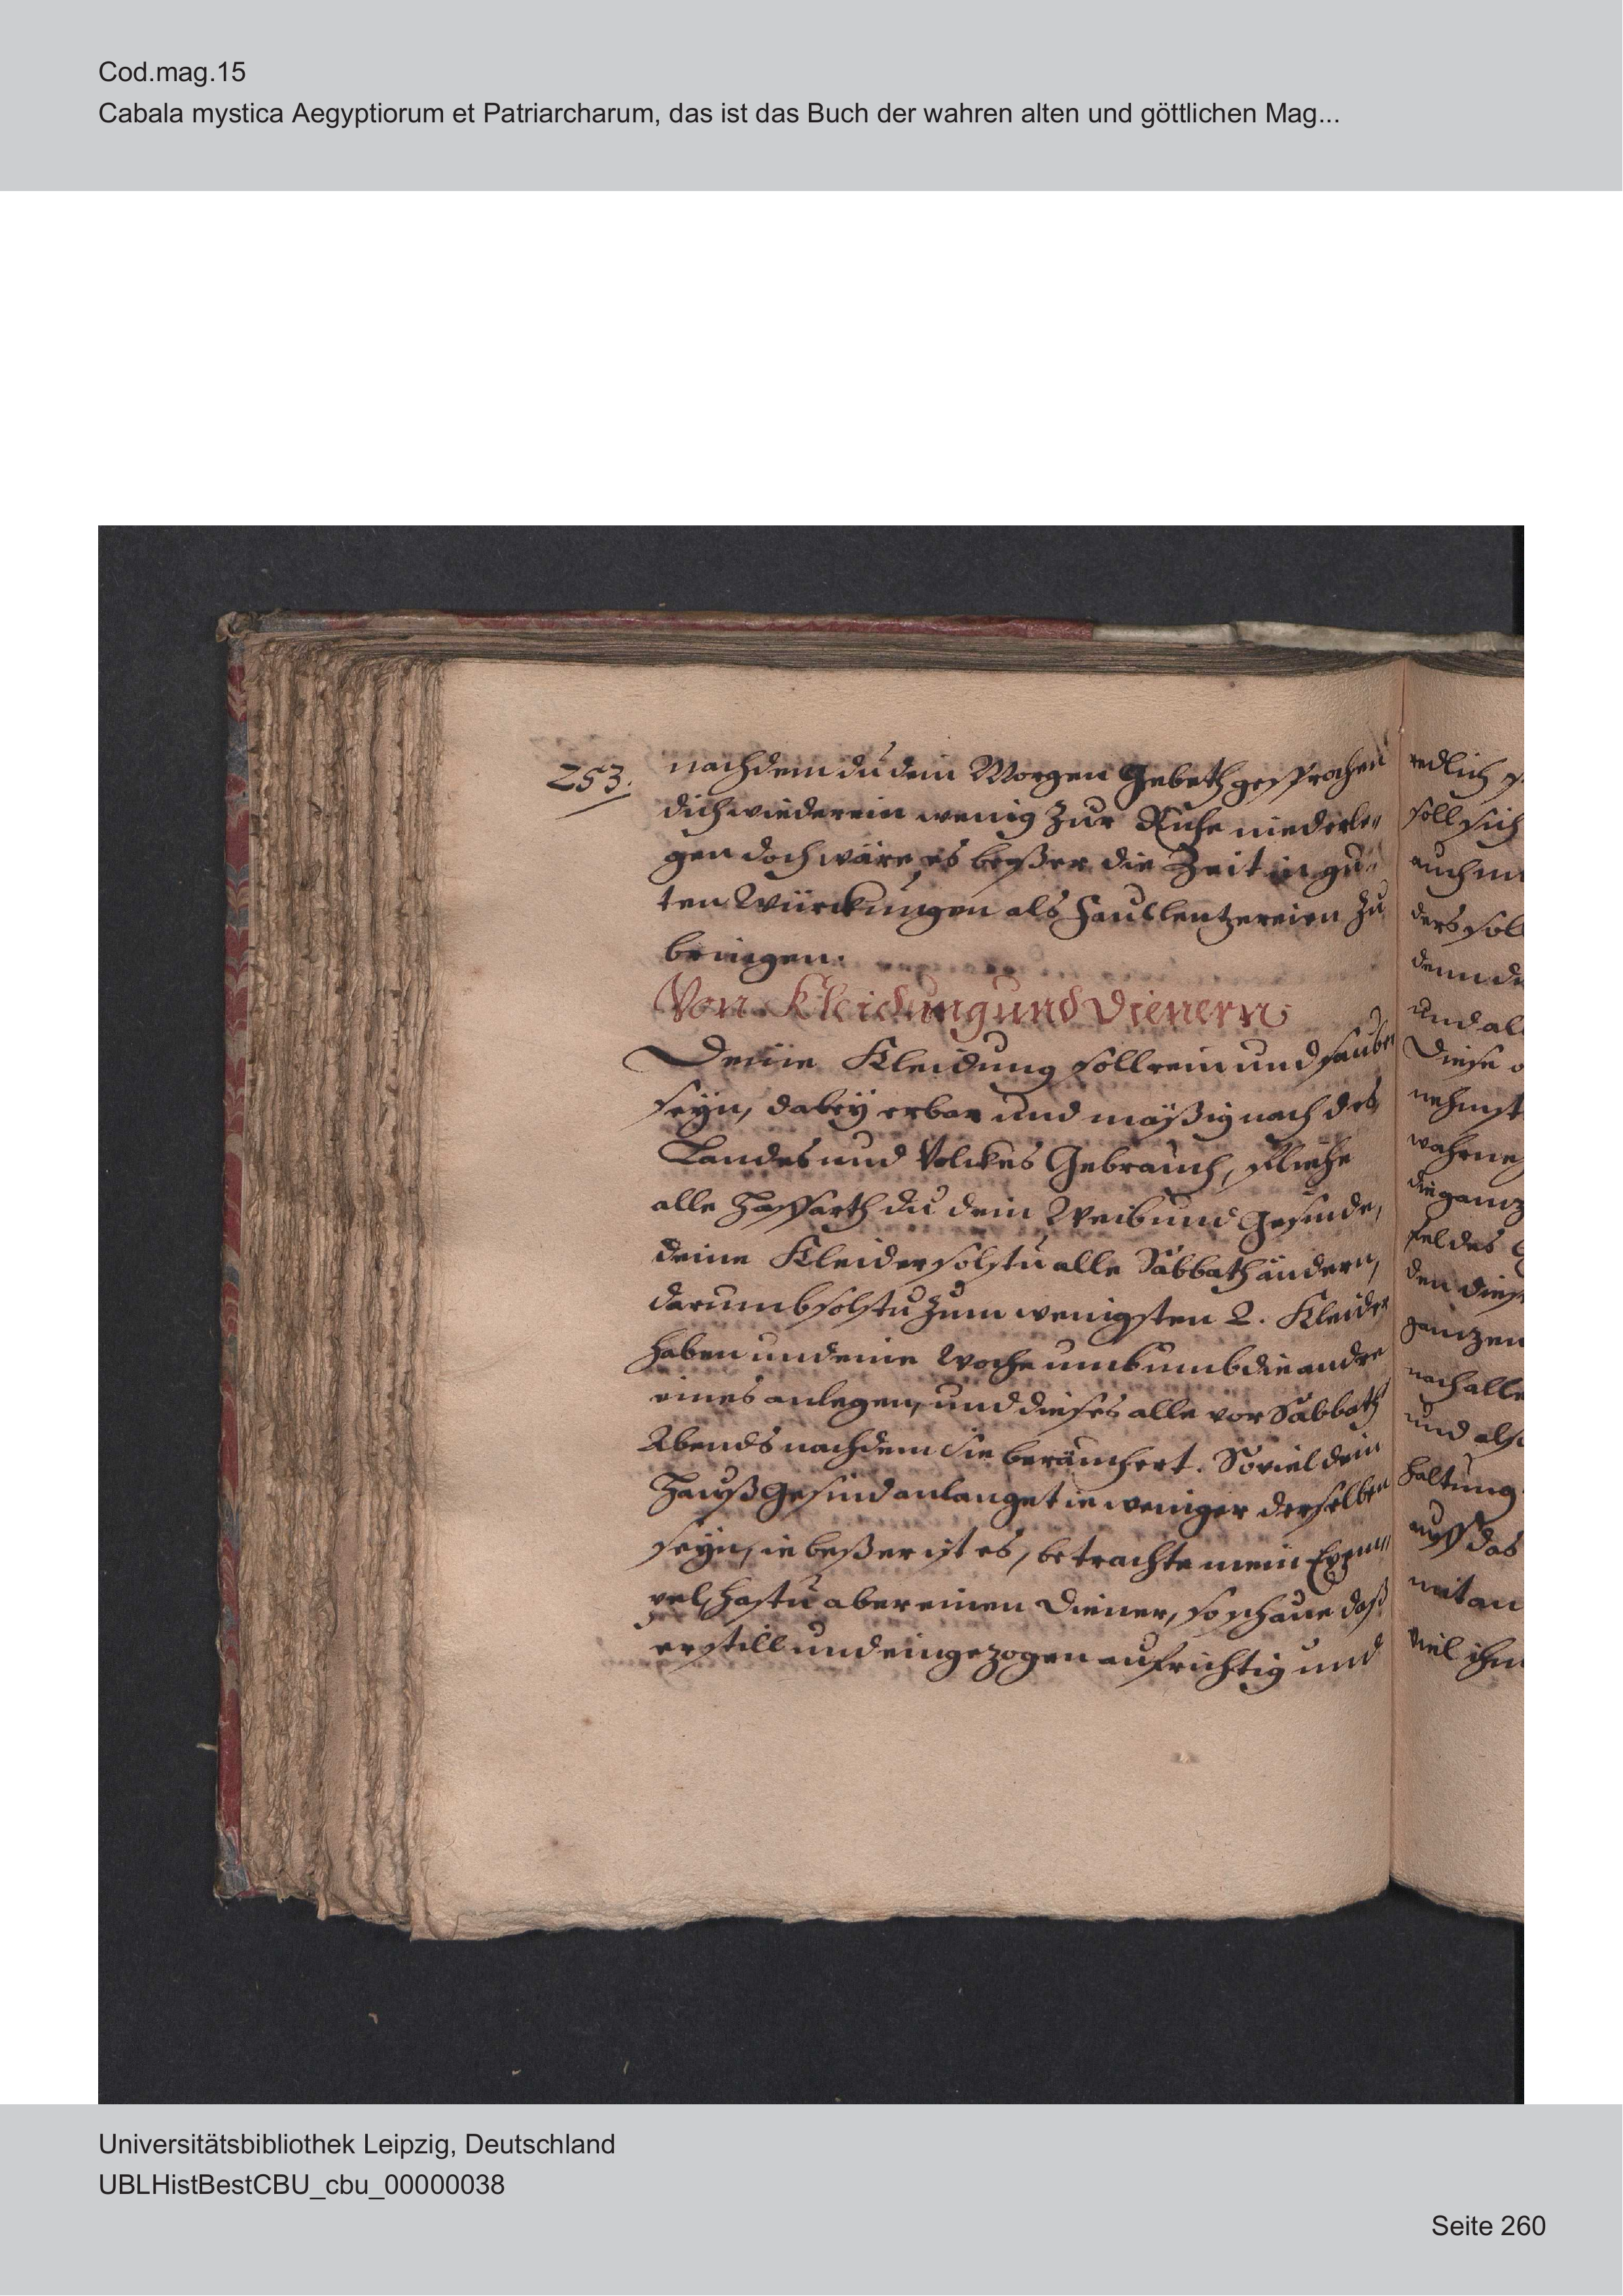 Cod.mag.15
Cabala mystica Aegyptiorum et Patriarcharum, das ist das Buch der wahren alten und göttlichen Mag...
253.
nachdem du dein Morgen Gebeth gesprochen
dich wieder ein wenig zur Ruhe niederle„
gen doch wäre es beßer die Zeit in gu„
ten Würckungen als Faullentzereien zu
bringen.
Von Kleidung und Dienern
Deine Kleidung soll rein und sauber
seyn, dabey erbar und mäßig nach des
Landes und Volckes Gebrauch, fliehe
alle Hoffarth du dein Weib und Gesinde,
deine Kleider solstu alle Sabbath ändern,
darumb solstu zum wenigsten 2. Kleider
haben und eine Woche umb umb die andre
eines anlegen, und dieses alle vor Sabbath
Abends nachdem sie beräuchert. Soviel dein
Hauß Gesind anlanget ie weniger derselben
seyn, ie beßer ist es, betrachte mein Exem„
pel, hastu aber einen Diener, so schaue daß
er still und eingezogen aufrichtig und
redlich
soll sich
auch
ders soll
denn
und
Diese
nehmst
die ganz
feldes
den
ganzen
nach alle
und also
haltung
auff das
mit an
viel ihm
Universitätsbibliothek Leipzig, Deutschland
UBLHistBestCBU_cbu_00000038
Seite 260